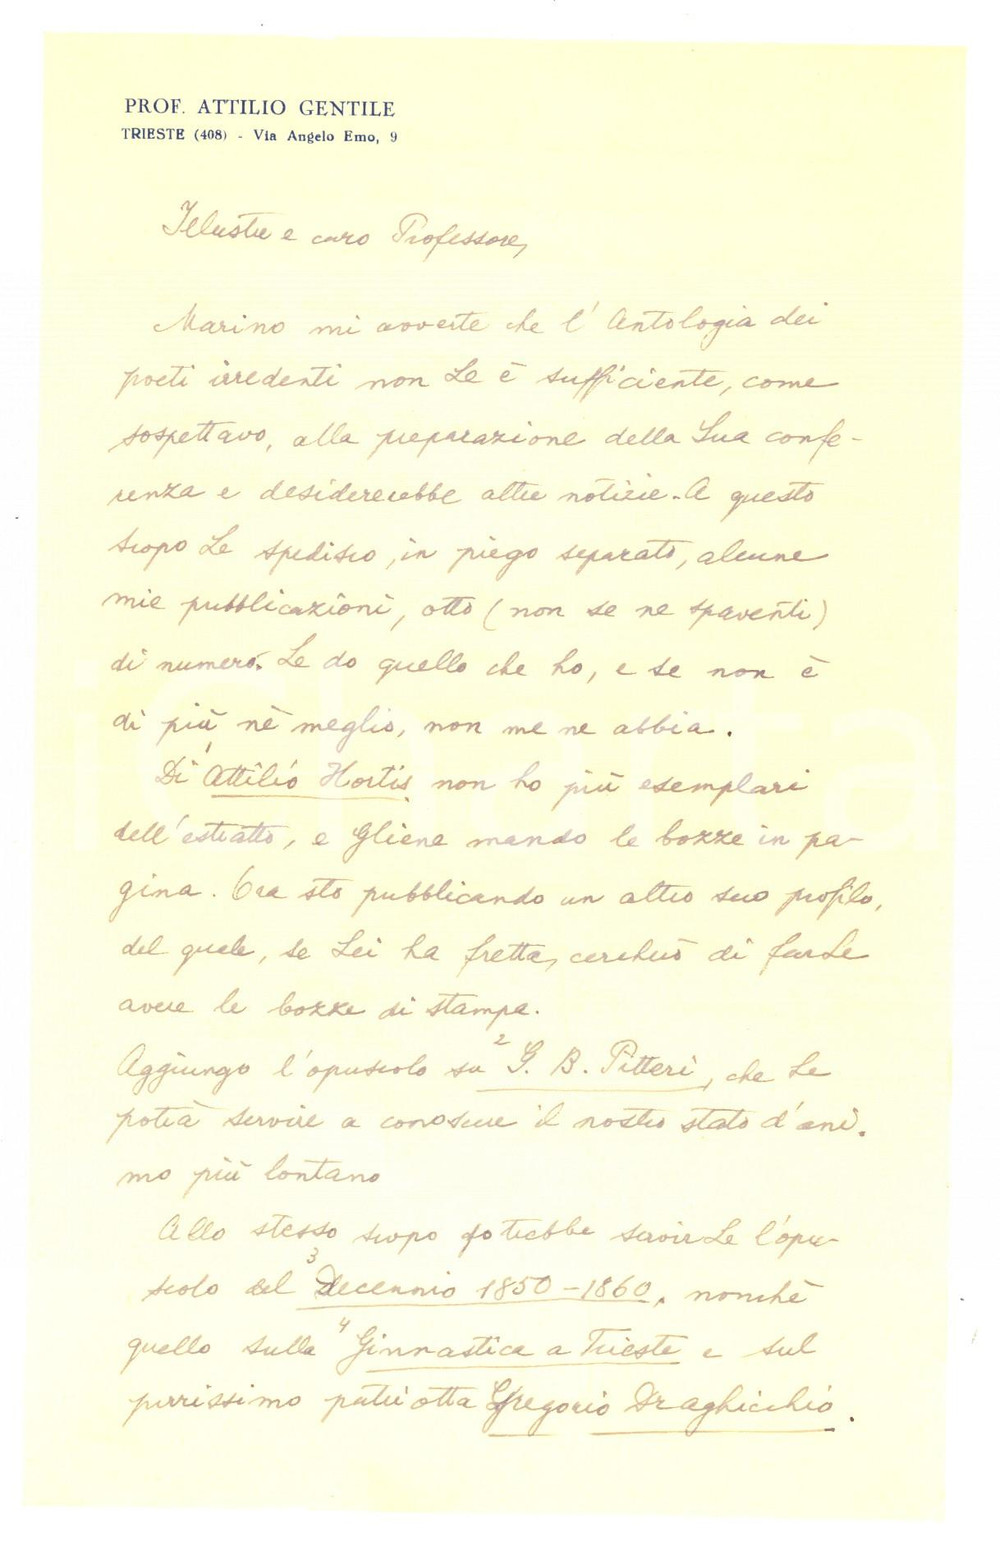 PROF. ATTILIO GENTILE
TRIESTE (408) - Via Angelo Emo, 9
Illustre e caro Professore,
Marino mi avverte che l'Antologia dei
poeti irredenti non Le è sufficiente, come
sospettavo, alla preparazione della Sua confe-
renza e desidererebbe altre notizie. A questo
scopo Le spedisco, in piego separato, alcune
mie pubblicazioni, otto (non se ne spaventi)
di numero. Le do quello che ho, e se non è
di più nè meglio, non me ne abbia.
Di 1 Attilio Hortis non ho più esemplari
dell'estratto, e Gliene mando le bozze in pa-
gina. Ora sto pubblicando un altro suo profilo,
del quale, se Lei ha fretta, cercherò di farLe
avere le bozze di stampa.
Aggiungo l'opuscolo su 2 G. B. Pitteri, che Le
potrà servire a conoscere il nostro stato d'ani-
mo più lontano
Allo stesso scopo potrebbe servirLe l'opu-
scolo del 3 Decennio 1850-1860, nonchè
quello sulla 4 Ginnastica a Trieste e sul
purissimo patriotta Gregorio Draghicchio.
iCharta